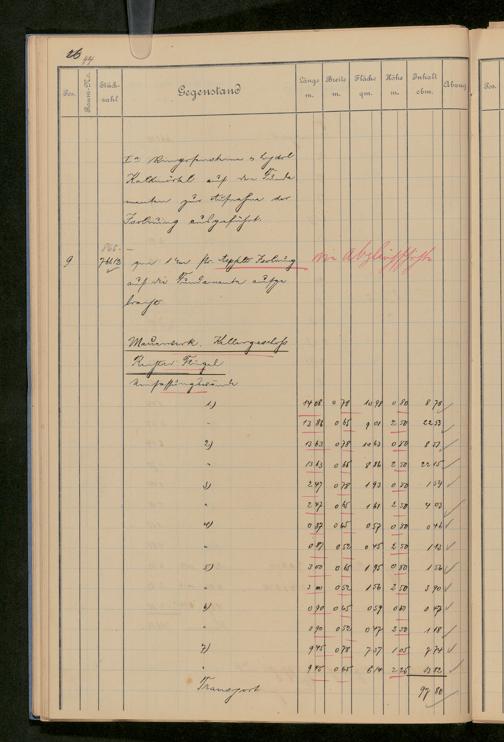 26
Pos. Raum-No. Stück-zahl Gegenstand Länge m. Breite m. Fläche qm. Höhe m. Inhalt cbm. Abzug Pos.
auf den Funda
menten zur Aufnahme der
Isolirung ausgeführt.
9 qm 1 cm Asphalt Isolirung
auf die Fundamente aufge
bracht
Mauerwerk. Kellergeschoß
Rechter Flügel
Umfassungswände
1) 14 08 0 78 10 98 0 80 8 78
" 13 86 0 65 9 01 2 50 22 53
2) 13 63 0 78 10 63 0 80 8 51
" 13 63 0 65 8 86 2 50 22 15
3) 2 47 0 78 1 93 0 80 1 54
" 2 47 0 65 1 61 2 50 4 03
4) 0 87 0 65 0 57 0 80 0 46
" 0 87 0 52 0 45 2 50 1 13
5) 3 00 0 65 1 95 0 80 1 56
" 3 00 0 52 1 56 2 50 3 90
6) 0 90 0 65 0 59 0 47
" 0 90 0 52 0 47 2 50 1 18
7) 9 45 0 78 7 37 1 05 7 74
" 9 45 0 65 6 14 2 25 13 82
Transport 97 80